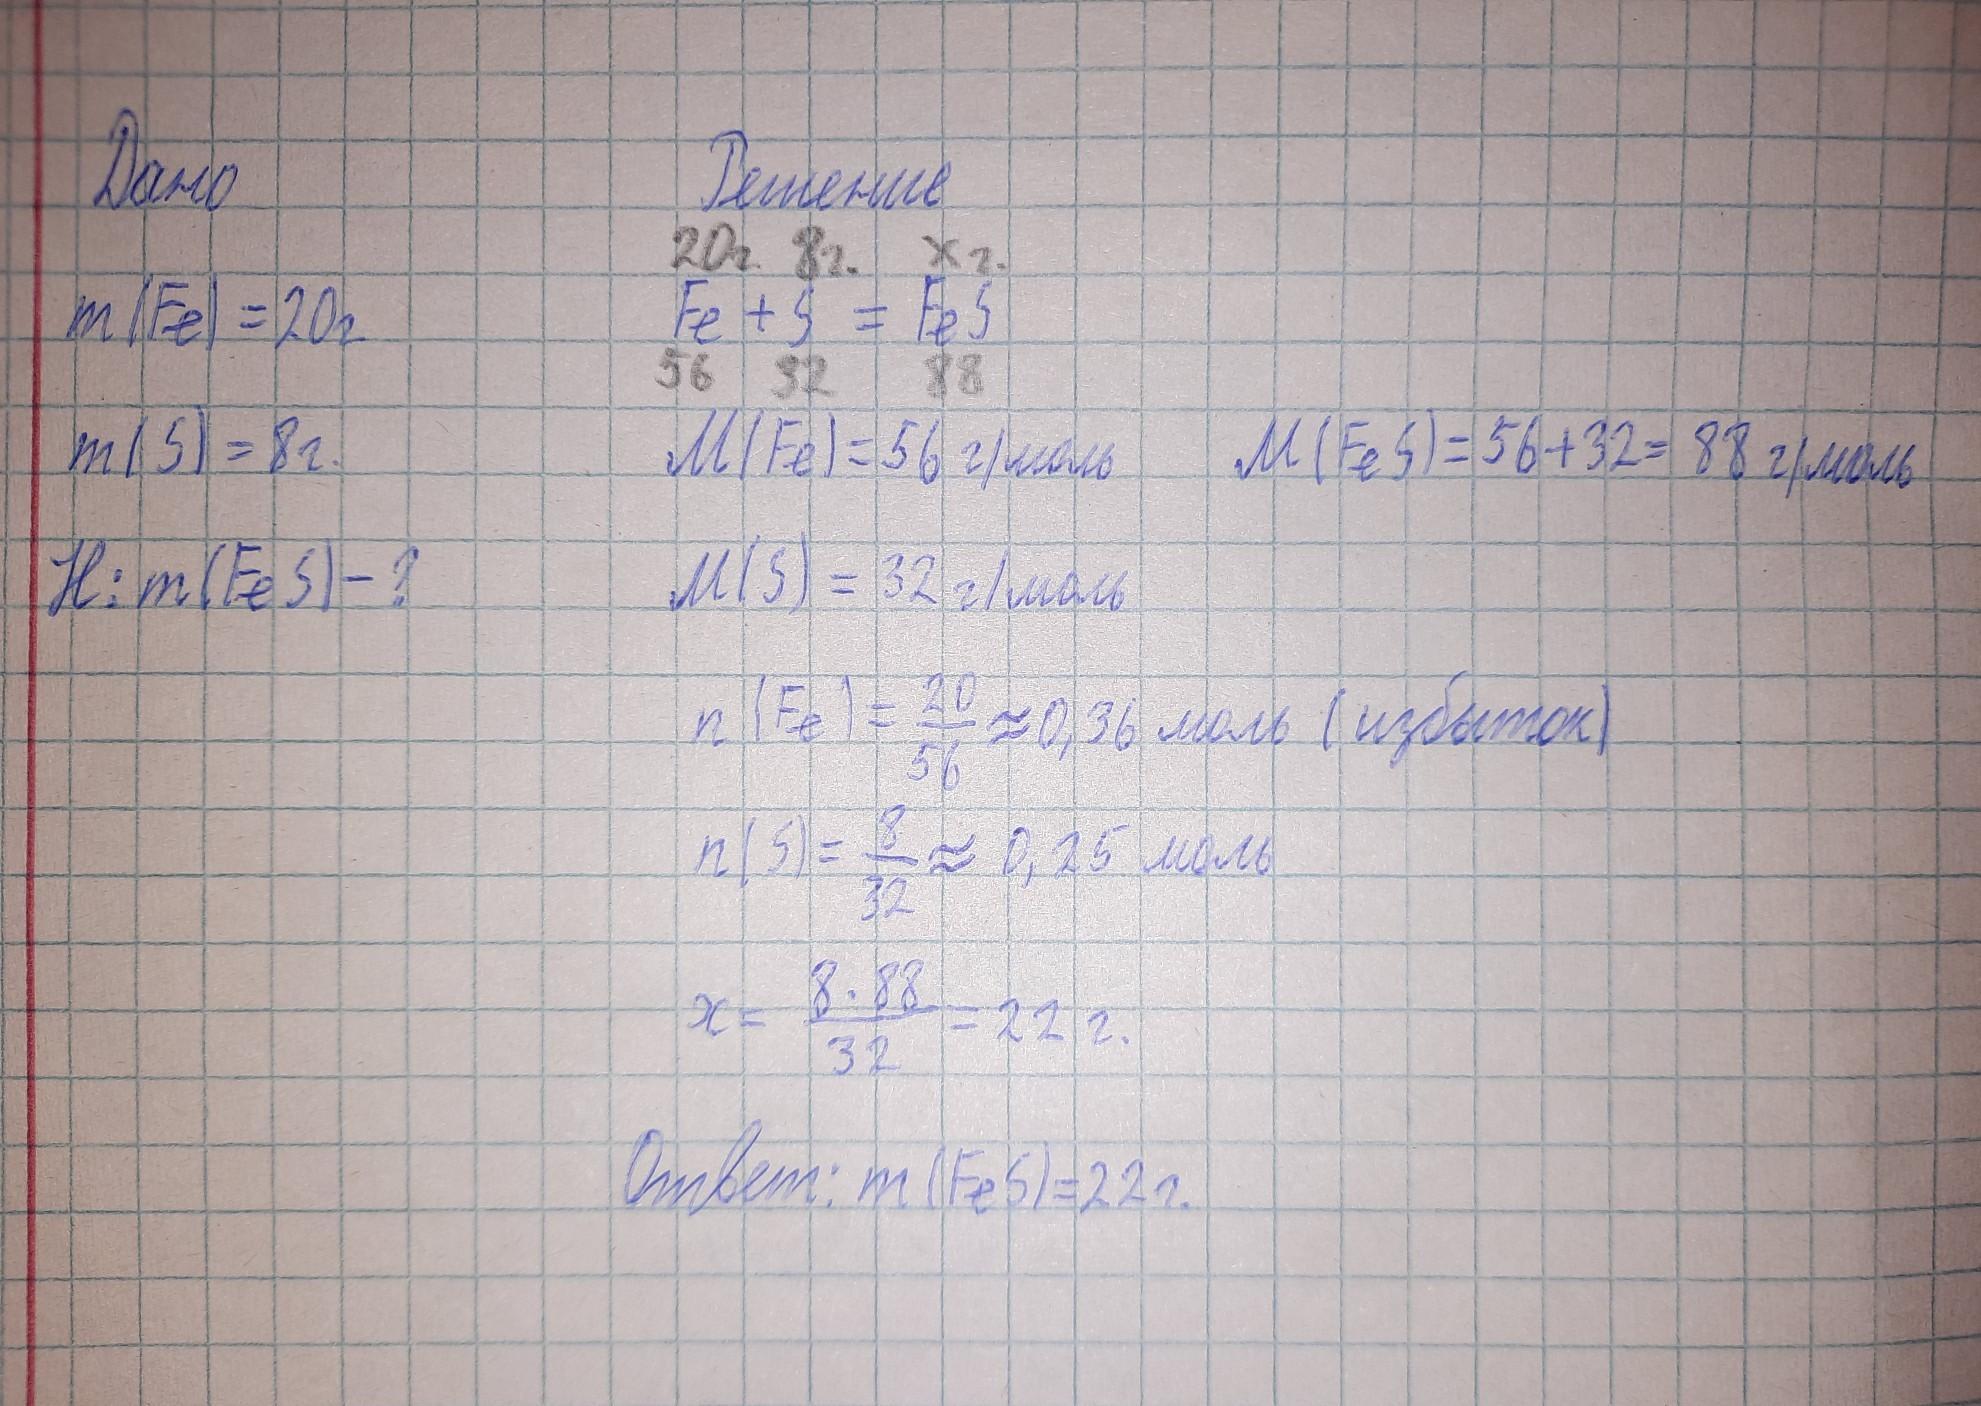 Дано Решение
20г. 8г. x г.
m(Fe) = 20г Fe + S = FeS
56 32 88
m(S) = 8г. M(Fe) = 56 г/моль M(FeS) = 56+32= 88 г/моль
Н: m(FeS) - ? M(S) = 32 г/моль
n(Fe) = 20/56 ≈ 0,36 моль (избыток)
n(S) = 8/32 ≈ 0,25 моль
x = 8·88/32 = 22 г.
Ответ: m(FeS)=22г.